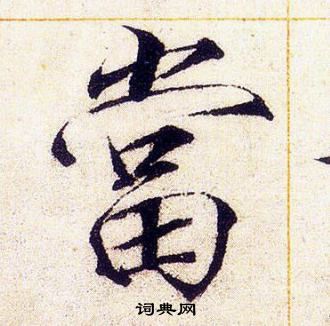 當
词典网